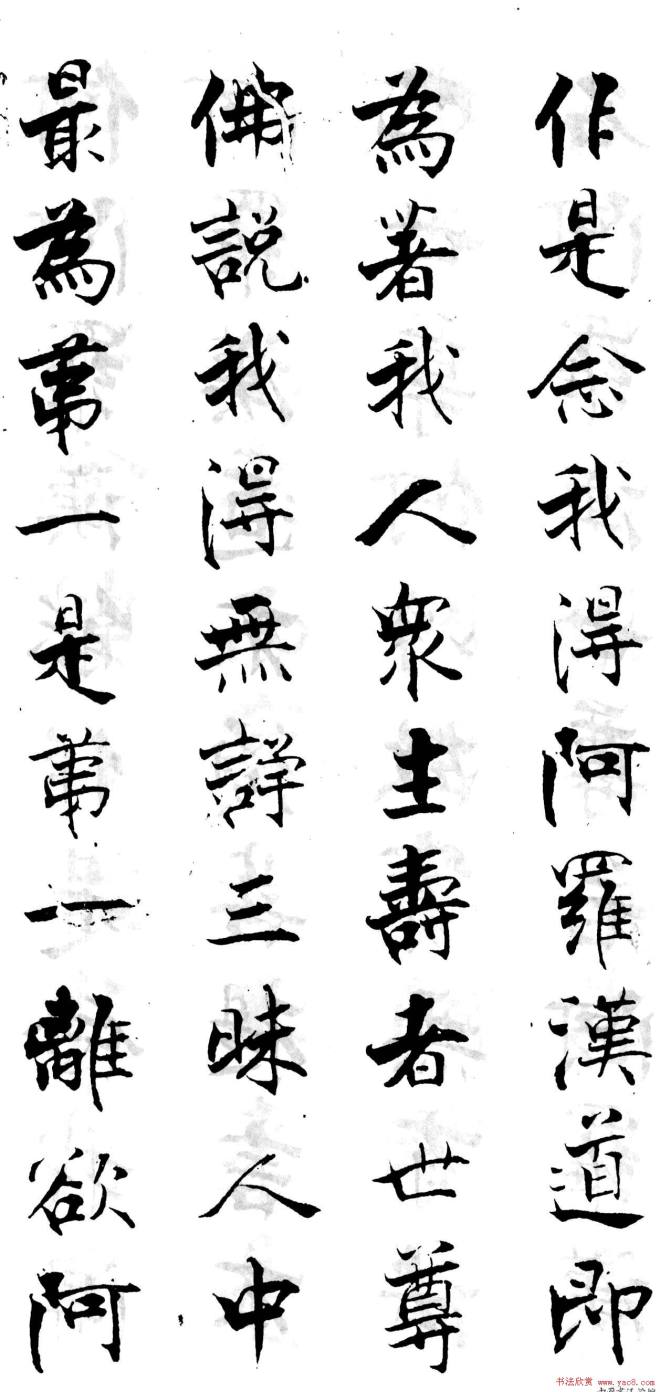 作是念我得阿羅漢道即
為著我人眾生壽者世尊
佛說我得無諍三昧人中
最為第一是第一離欲阿
书法欣赏 www.yac8.com